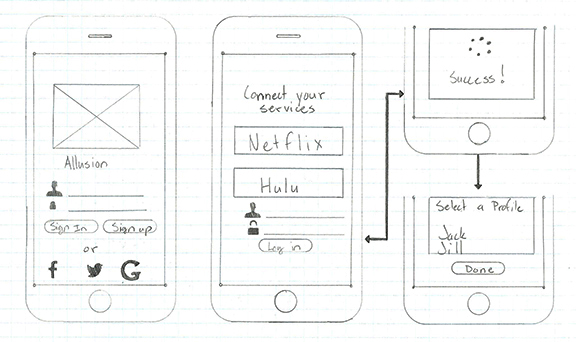 Allusion
Sign In
Sign up
or
f
G
Connect your
services
Netflix
Hulu
Log in
Success!
Select a Profile
Jack
Jill
Done